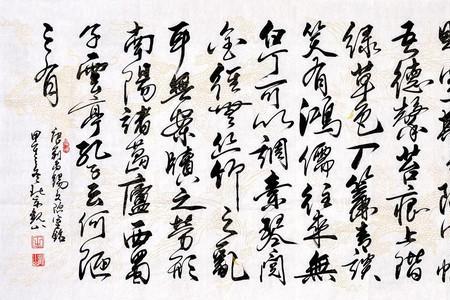 吾德馨苔痕上階
綠草色入簾青談
笑有鴻儒往來無
白丁可以調素琴閱
金經無絲竹之亂
耳無案牘之勞形
南陽諸葛廬西蜀
子雲亭孔子云何陋
之有
唐劉禹錫文陋室銘